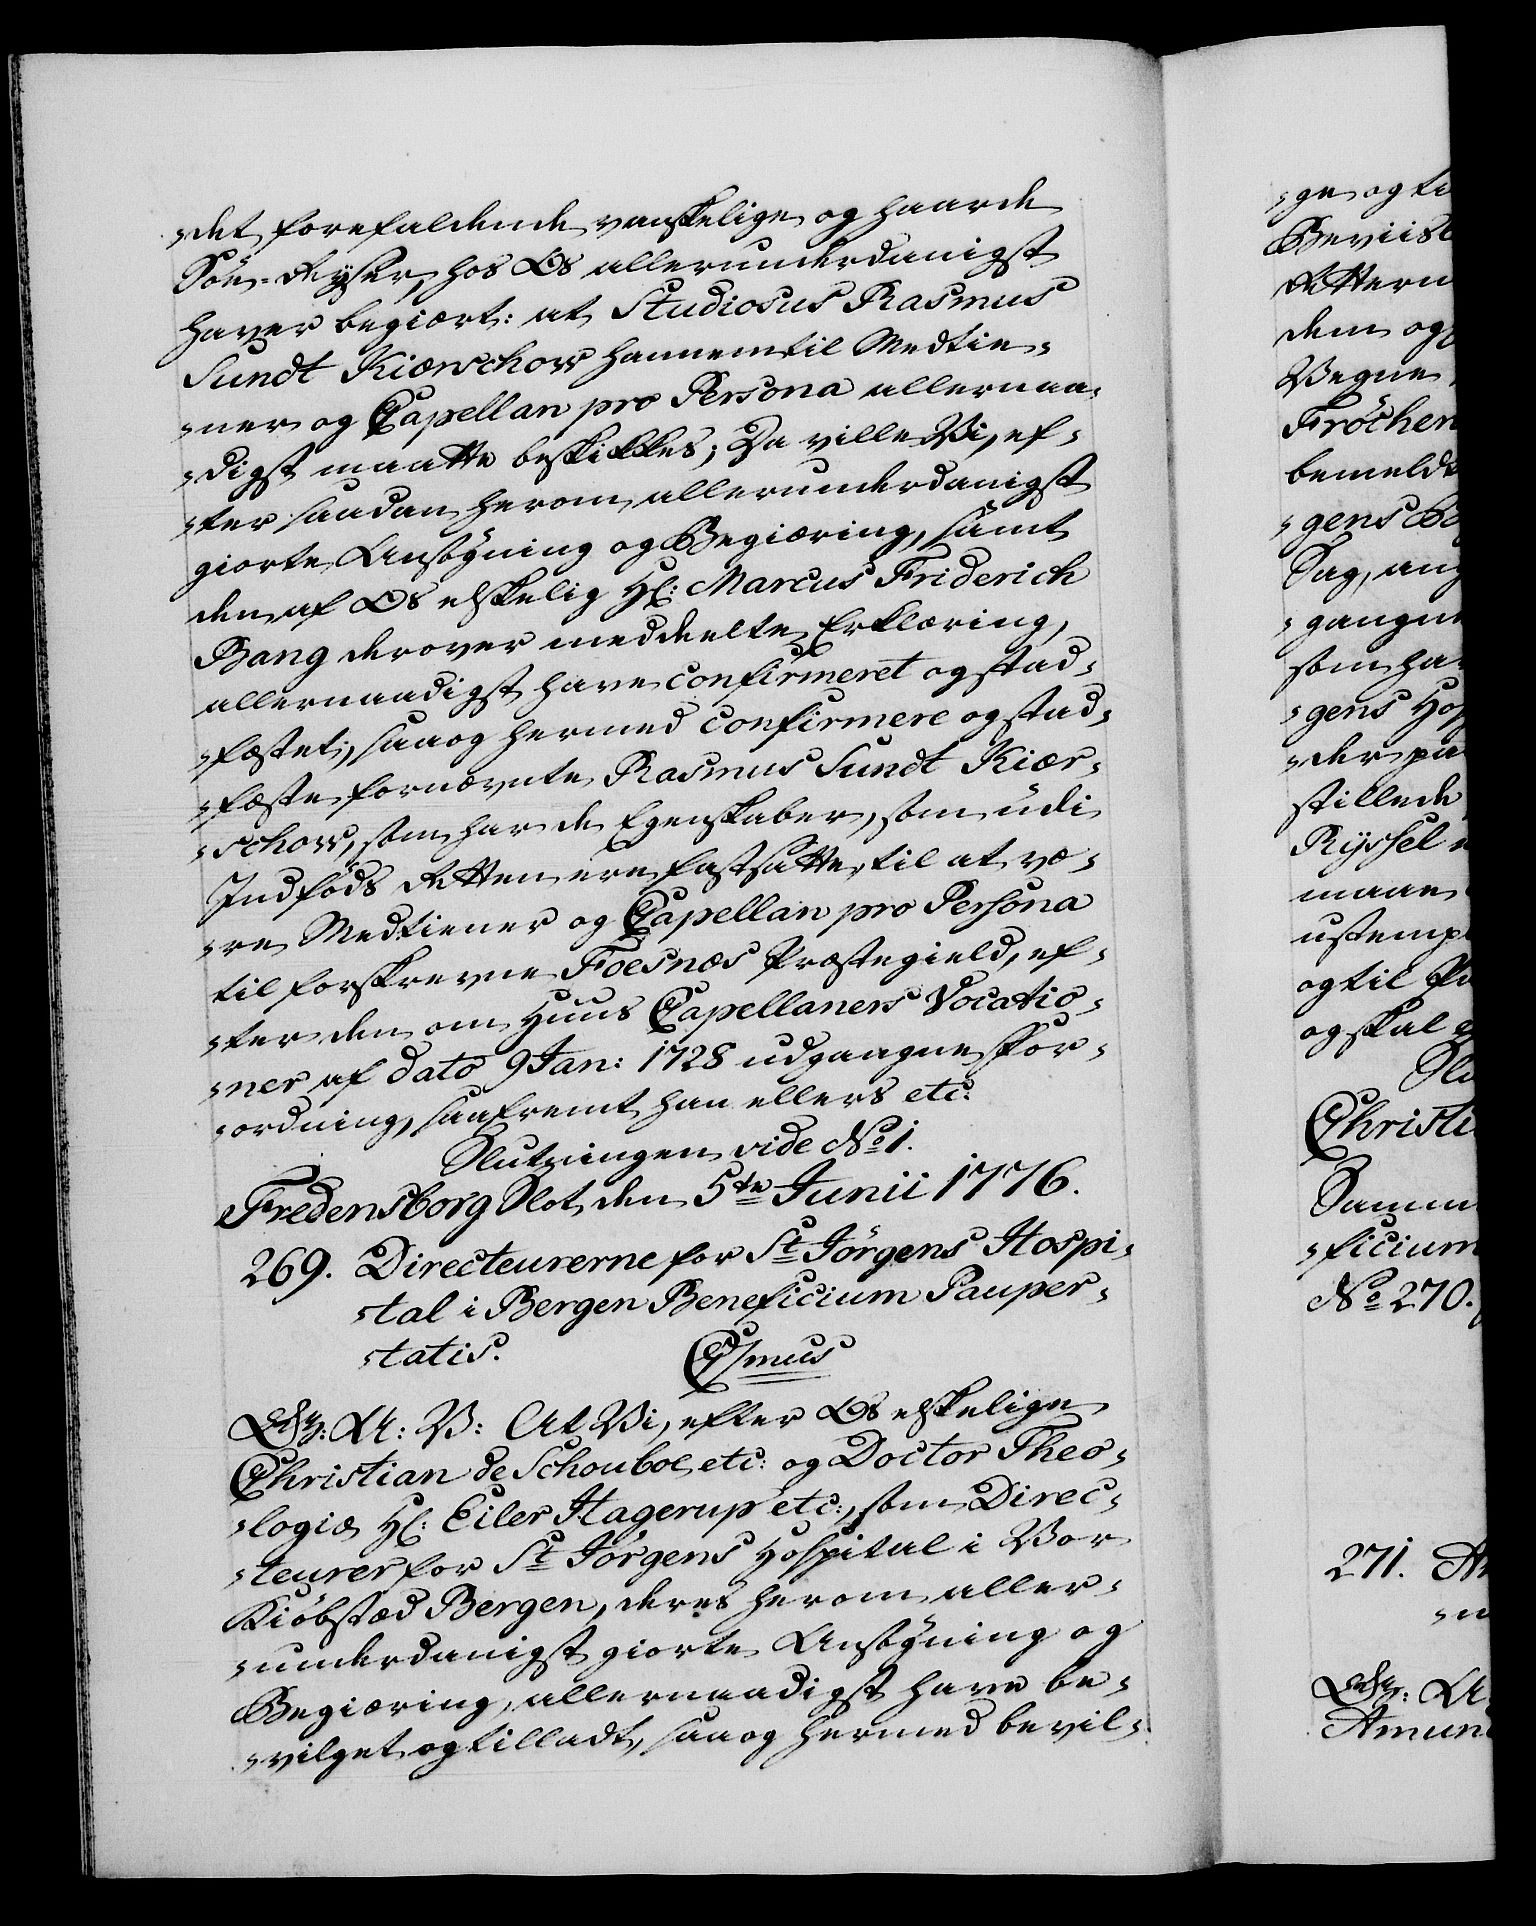 -det forefaldende vanskelige og haarde
Söe-Reyser, hos Os allerunderdanigst
haver begiært: at Studiosus Rasmus
Sundt Kiærschow hannem til Medtie-
-ner og Capellan pro Persona allernaa-
-digst maatte beskikkes; Da ville Vi, ef-
-ter saadan herom allerunderdanigst
giorte Ansögning og Begiæring, samt
den af Os elskelig Hr: Marcus Friderich
Bang derover meddeelte Erklæring,
allernaadigst have confirmeret og stad-
-fæstet, saa og hermed confirmere og stad-
-fæste fornævnte Rasmus Sundt Kiær-
-schow, som har de Egenskaber, som udi
Indföds Retten ere fastsatte, til at væ-
-re Medtiener og Capellan pro Persona
til forskrevne Foesnæs Præstegield, ef-
-ter den om Huus Capellaners Vocatio-
-ner af dato 9 Jan: 1728 udgangne For-
-ordning, saafremt han ellers etc:
Slutningen vide No 1.
Fredensborg Slot den 5te Junii 1776.
269. Directeurerne for St Jörgens Hospi-
-tal i Bergen Beneficium Pauper-
-tatis.
C7mus
G: A: V: At Vi, efter Os elskelige
Christian de Schouboe etc: og Doctor Theo-
-logiæ Hr: Eiler Hagerup etc:, som Direc-
-teurer for St Jörgens Hospital i Vor
Kiöbstæd Bergen, deres herom aller-
-underdanigst giorte Ansögning og
Begiæring, allernaadigst have be-
-vilget og tilladt, saa og hermed bevil-
-ge og ti
Beviis
Retter
dem og
Vegne
Fröchen
bemeldt
-gens
Sag, an
-gangne
som ha
-gens Hos
-der pa
stillede
Ryssel
maae
ustempl
og til
og skal
Slu
Christi
Samm
-ficium
No 270.
271.
Amun